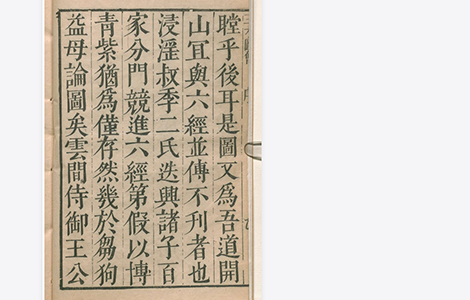 瞠乎後耳是圖文爲吾道開
山冝與六經並傳不刊者也
浸淫叔季二氏迭興諸子百
家分門競進六經第假以博
青紫猶爲僅存然幾於芻狗
益母論圖矣雲間侍御王公